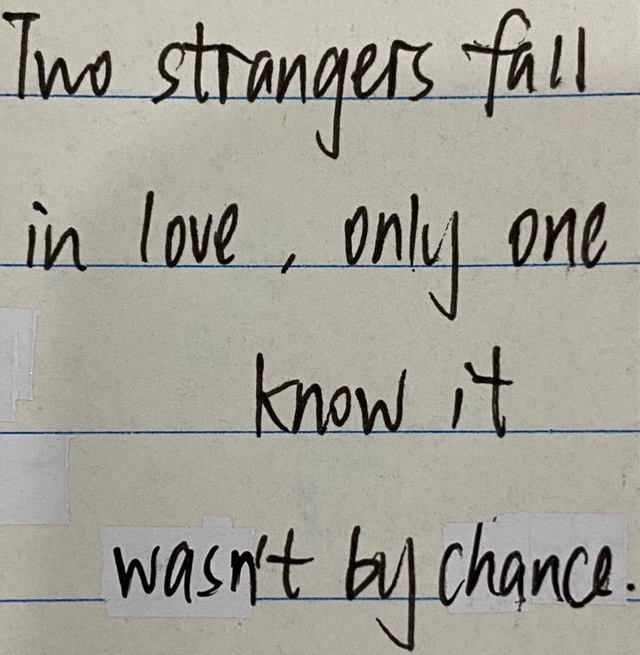 Two strangers fall
in love, only one
know it
wasn't by chance.